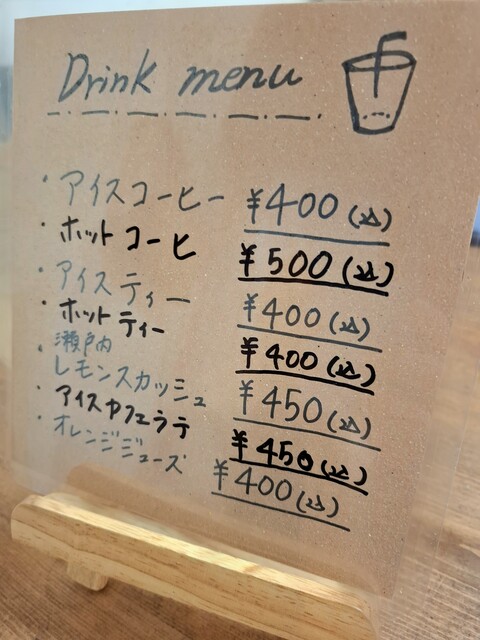 Drink menu
・アイスコーヒー ¥400(込)
・ホットコーヒ ¥500(込)
・アイスティー ¥400(込)
・ホットティー ¥400(込)
・瀬戸内
レモンスカッシュ ¥450(込)
・アイスカフェラテ ¥450(込)
・オレンジジュース ¥400(込)